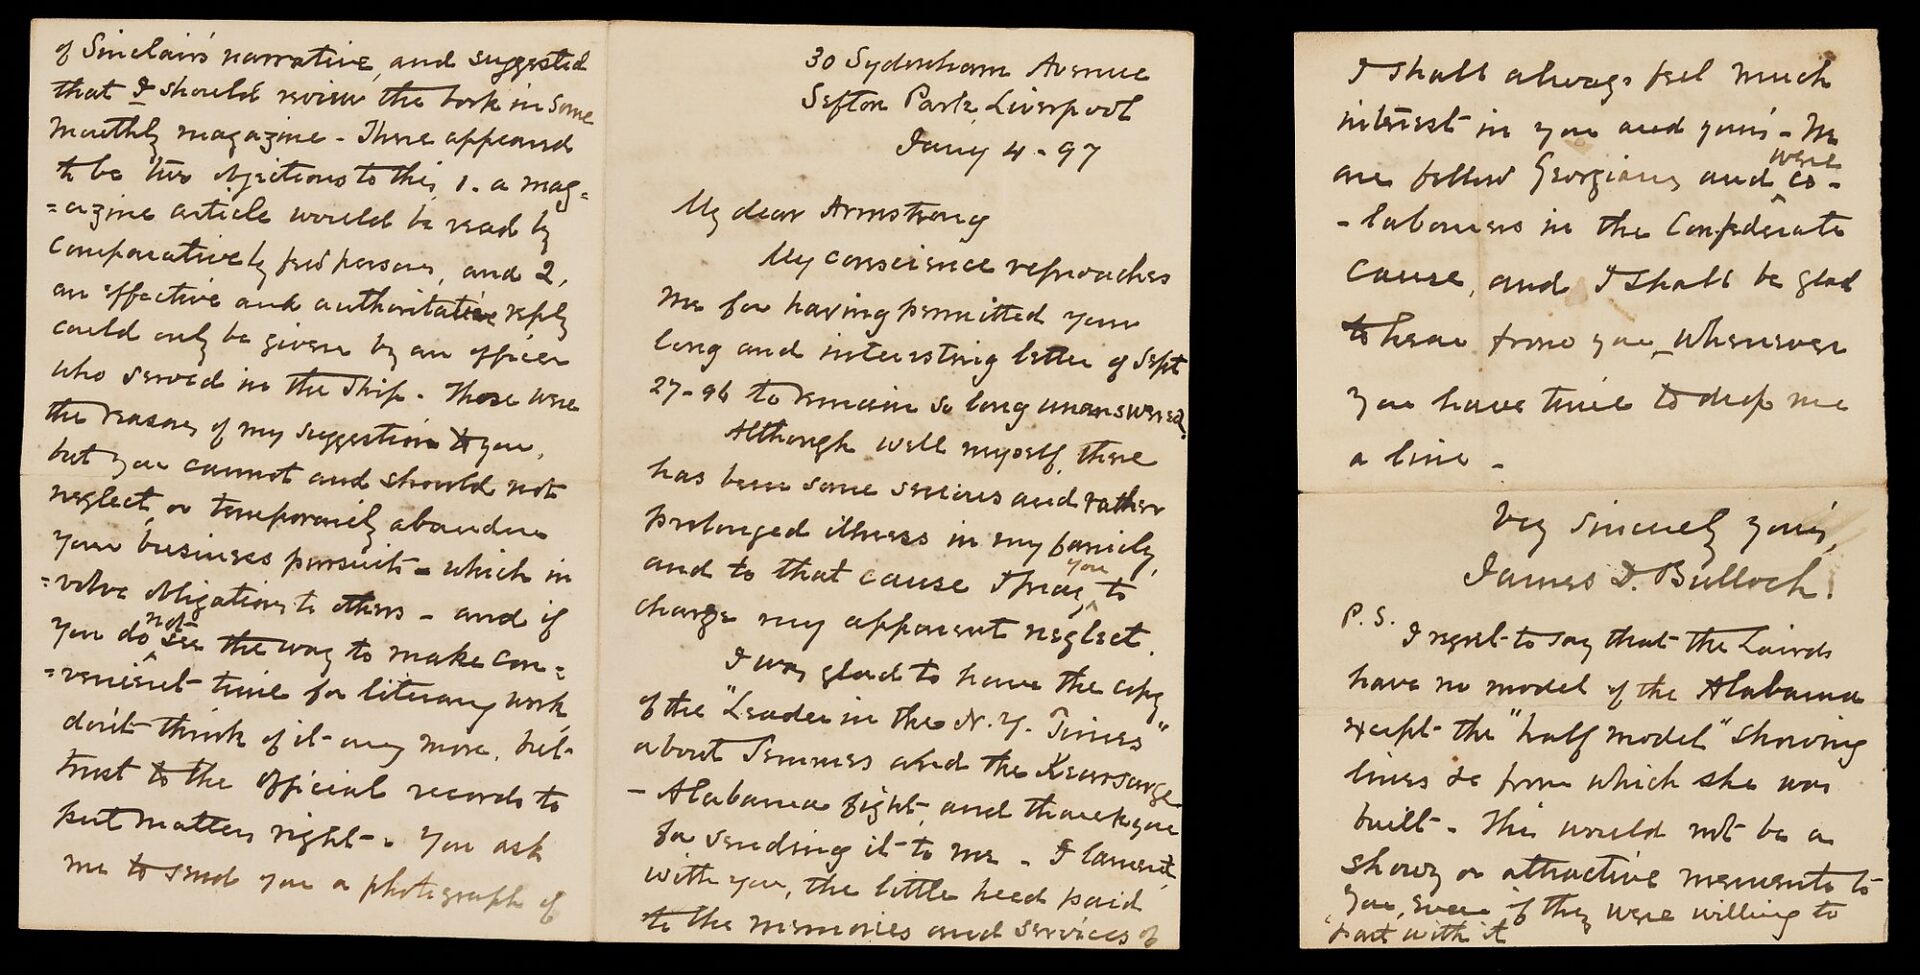 of Sinclair's narrative, and suggested
that I should review the book in some
monthly magazine - There appeared
to be two objections to this, 1. a mag=
=azine article would be read by
comparatively few persons, and 2,
an effective and authoritative reply
could only be given by an officer
who served in the ship. Those were
the reasons of my suggestion to you,
but you cannot and should not
neglect, or temporarily abandon
your business pursuits - which in
=volve obligations to others - and if
you do not see the way to make con=
=venient time for literary work,
don't think of it any more, but
trust to the official records to
put matters right -. You ask
me to send you a photograph of
30 Sydenham Avenue
Sefton Park, Liverpool
Jany 4 - 97
My dear Armstrong
My conscience reproaches
me for having permitted your
long and interesting letter of Sept
27-96 to remain so long unanswered.
Although well myself, there
has been some serious and rather
prolonged illness in my family,
and to that cause I pray you to
charge my apparent neglect.
I was glad to have the copy
of the "Leader in the N.Y. Times"
about Semmes and the Kearsarge
- Alabama fight, and thank you
for sending it to me - I lament,
with you, the little heed paid
to the memories and services of
I shall always feel much
interest in you and yours - We
are fellow Georgians and were co-
-laborers in the Confederate
cause, and I shall be glad
to hear from you, whenever
you have time to drop me
a line -
Very Sincerely yours,
James D. Bulloch.
P.S.
I regret to say that the Lairds
have no model of the Alabama
except the "half model" showing
lines &c from which she was
built - This would not be a
showy or attractive memento to
you, even if they were willing to
part with it